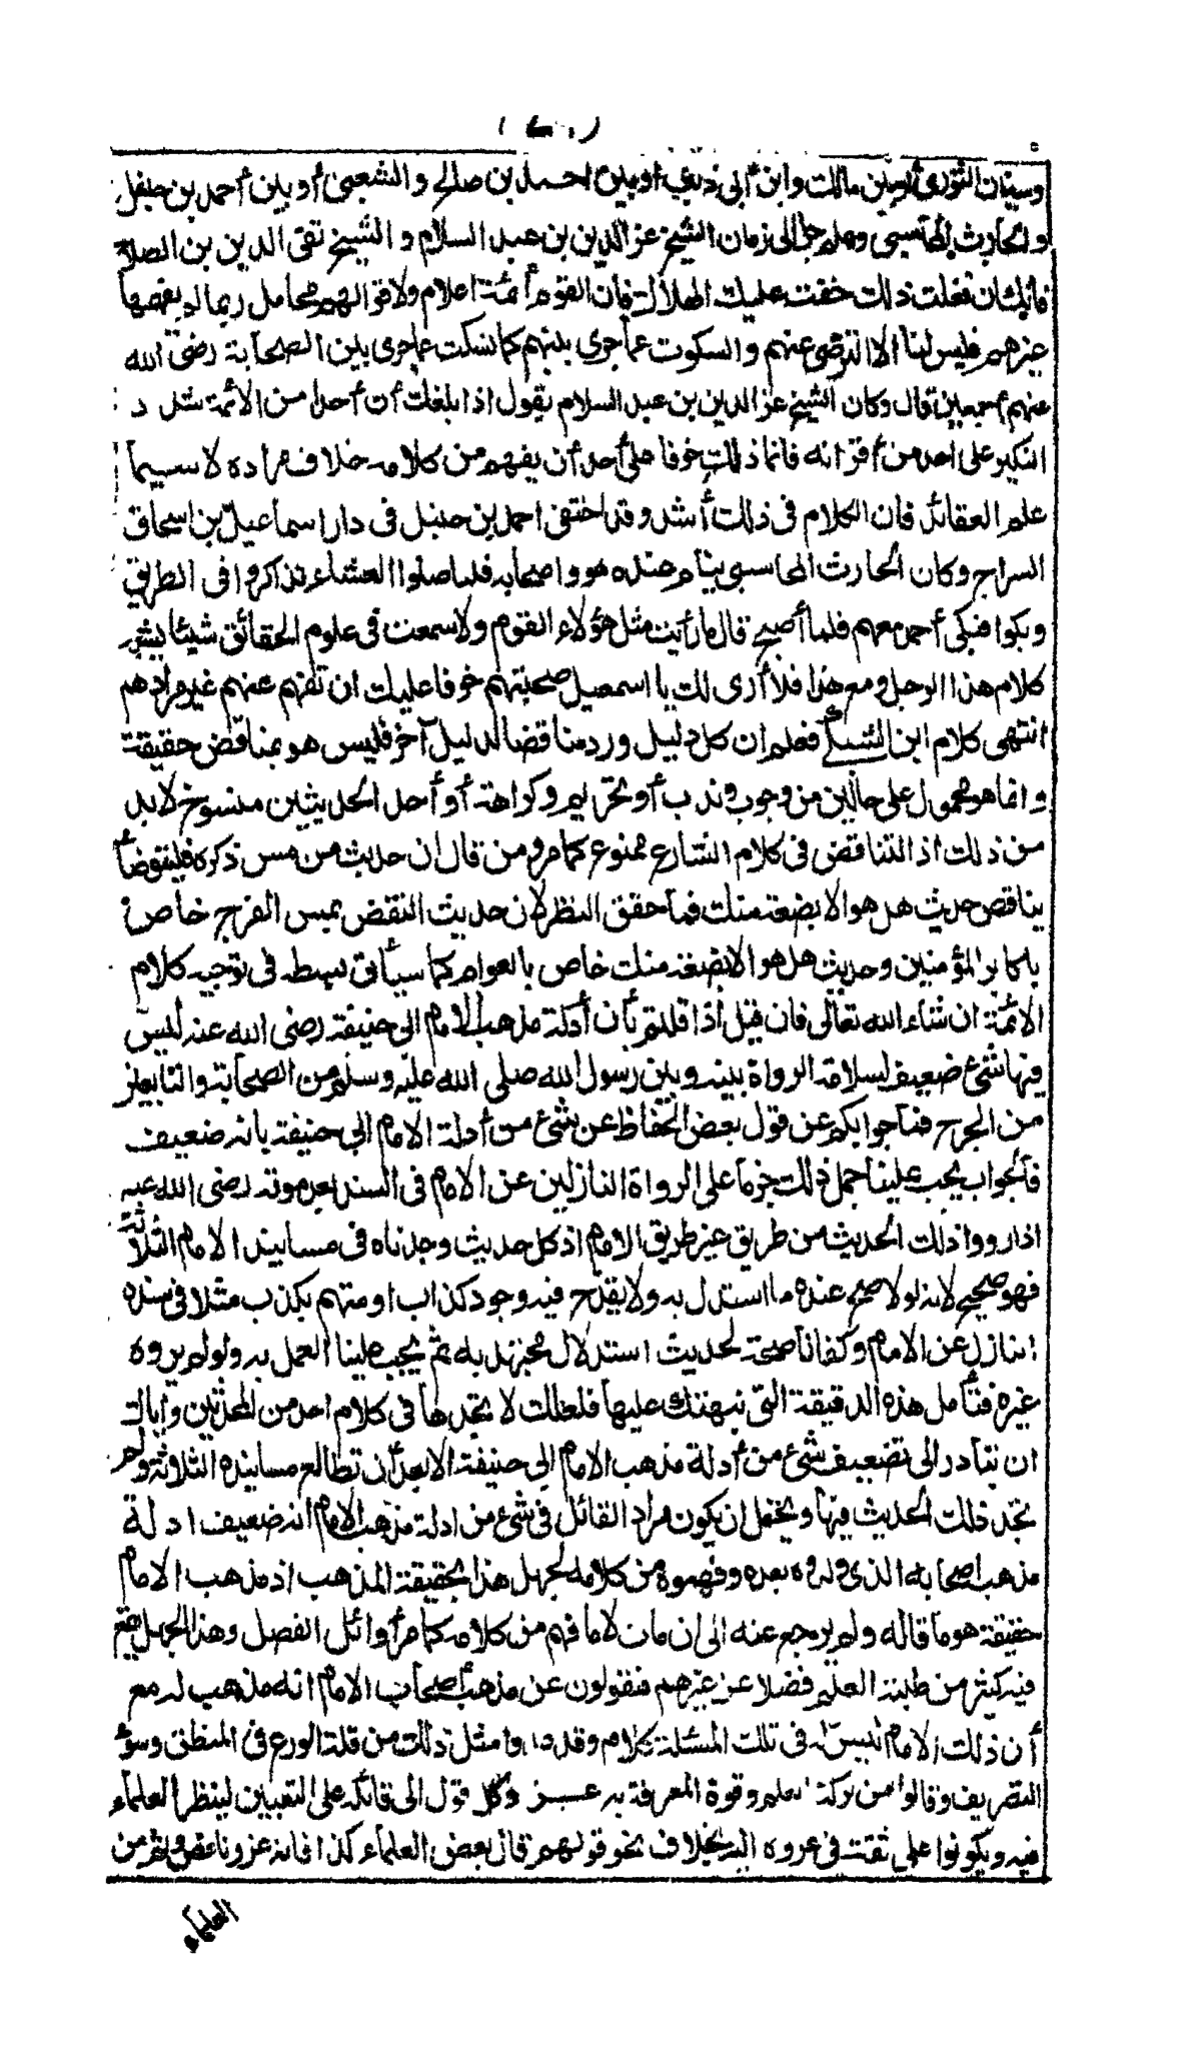 وسفيان الثورى أو بين مالك وابن أبى ذئب أو بين احمد بن صالح والشعبى أو بين أحمد بن حنبل
والحارث المحاسبى وهلم جرا الى زمان الشيخ عز الدين بن عبد السلام والشيخ تقى الدين بن الصلاح
فانك ان فعلت ذلك خفت عليك الهلاك فان القوم أئمة اعلام ولاقوالهم محامل ربما لم يفهمها
غيرهم فليس لنا الا الترضى عنهم والسكوت عما جرى بينهم كما نسكت عما جرى بين الصحابة رضى الله
عنهم أجمعين قال وكان الشيخ عز الدين بن عبد السلام يقول اذا بلغك أن أحدا من الأئمة شدد
النكير على احد من أقرانه فانما ذلك خوفا على أحد أن يفهم من كلامه خلاف مراده لا سيما
علم العقائد فان الكلام فى ذلك أشد وقد اختفى احمد بن حنبل فى دار اسماعيل بن اسحاق
السراج وكان الحارث المحاسبى ينام عنده هو واصحابه فلما صلوا العشاء تذاكروا فى الطريق
وبكوا فبكى أحمد معهم فلما أصبح قال ما رأيت مثل هؤلاء القوم ولا سمعت فى علوم الحقائق شيئا يشبه
كلام هذا الرجل ومع هذا فلا أرى لك يا اسمعيل صحبتهم خوفا عليك ان تفهم عنهم غير مرادهم
انتهى كلام ابن السبكى فعلم ان كل دليل ورد مناقضا لدليل آخر فليس هو بمناقض حقيقة
وانما هو محمول على حالين من وجوب وندب أو تحريم وكراهة أو أحد الحديثين منسوخ لا بد
من ذلك اذ التناقض فى كلام الشارع ممنوع كما مر ومن قال ان حديث من مس ذكره فليتوضأ
يناقض حديث هل هو الا بضعة منك فما حقق النظر لان حديث النقض بمس الفرج خاص
باكابر المؤمنين وحديث هل هو الا بضعة منك خاص بالعوام كما سيأتى بسطه فى توجيه كلام
الائمة ان شاء الله تعالى فان قيل اذا قلتم بأن أدلة مذهب الامام ابى حنيفة رضى الله عنه ليس
فيها شئ ضعيف لسلامة الرواة بينه وبين رسول الله صلى الله عليه وسلم من الصحابة والتابعين
من الجرح فما جوابكم عن قول بعض الحفاظ عن شئ من أدلة الامام ابى حنيفة بانه ضعيف
فالجواب يجب علينا حمل ذلك جزما على الرواة النازلين عن الامام فى السند بعد موته رضى الله عنه
اذا رووا ذلك الحديث من طريق غير طريق الامام اذ كل حديث وجدناه فى مسانيد الامام الثلاثة
فهو صحيح لانه لولا صح عنده ما استدل به ولا يقدح فيه وجود كذاب او متهم بكذب مثلا فى سنده
النازل عن الامام وكفانا صحة لحديث استدلال مجتهد به ثم يجب علينا العمل به ولو لم يروه
غيره فتأمل هذه الدقيقة التى نبهتك عليها فلعلك لا تجدها فى كلام احد من المحدثين واياك
ان تبادر الى تضعيف شئ من أدلة مذهب الامام ابى حنيفة الا بعد أن تطالع مسانيده الثلاثة ولم
تجد ذلك الحديث فيها ويحتمل ان يكون مراد القائل فى شئ من ادلة مذهب الامام انه ضعيف ادلة
مذهب اصحابه الذى ولدوه بعده وفهموه من كلامه لجهل هذا بحقيقة المذهب اذ مذهب الامام
حقيقة هو ما قاله ولم يرجع عنه الى ان مات لا ما فهم من كلامه كما مر أوائل الفصل وهذا الجهل يقع
فيه كثير من طلبة العلم فضلا عن غيرهم فيقولون عن مذهب أصحاب الامام انه مذهب له مع
أن ذلك الامام ليس له فى تلك المسئلة كلام وقد عدوا مثل ذلك من قلة الورع فى المنطق وسوء
التصريف وقالوا من بركة العلم وقوة المعرفة به عزو كل قول الى قائله على التعيين لينظر العلماء
فيه ويكونوا على ثقة فى عزوه اليه بخلاف نحو قولهم قال بعض العلماء كذا فانه عزو ناقص ونفر من
العلماء